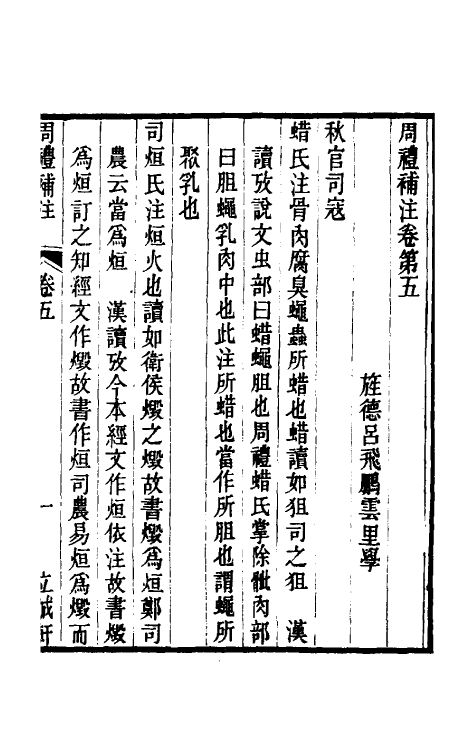 周禮補注卷第五
旌德呂飛鵬雲里學
秋官司寇
蜡氏注骨肉腐臭蠅蟲所蜡也蜡讀如狙司之狙　漢
讀攷說文虫部曰蜡蠅胆也周禮蜡氏掌除骴肉部
曰胆蠅乳肉中也此注所蜡也當作所胆也謂蠅所
聚乳也
司烜氏注烜火也讀如衛侯燬之燬故書燬爲烜鄭司
農云當爲烜　漢讀攷今本經文作烜依注故書燬
爲烜訂之知經文作燬故書作烜司農易烜爲燬而
周禮補注
卷五
一
立誠軒